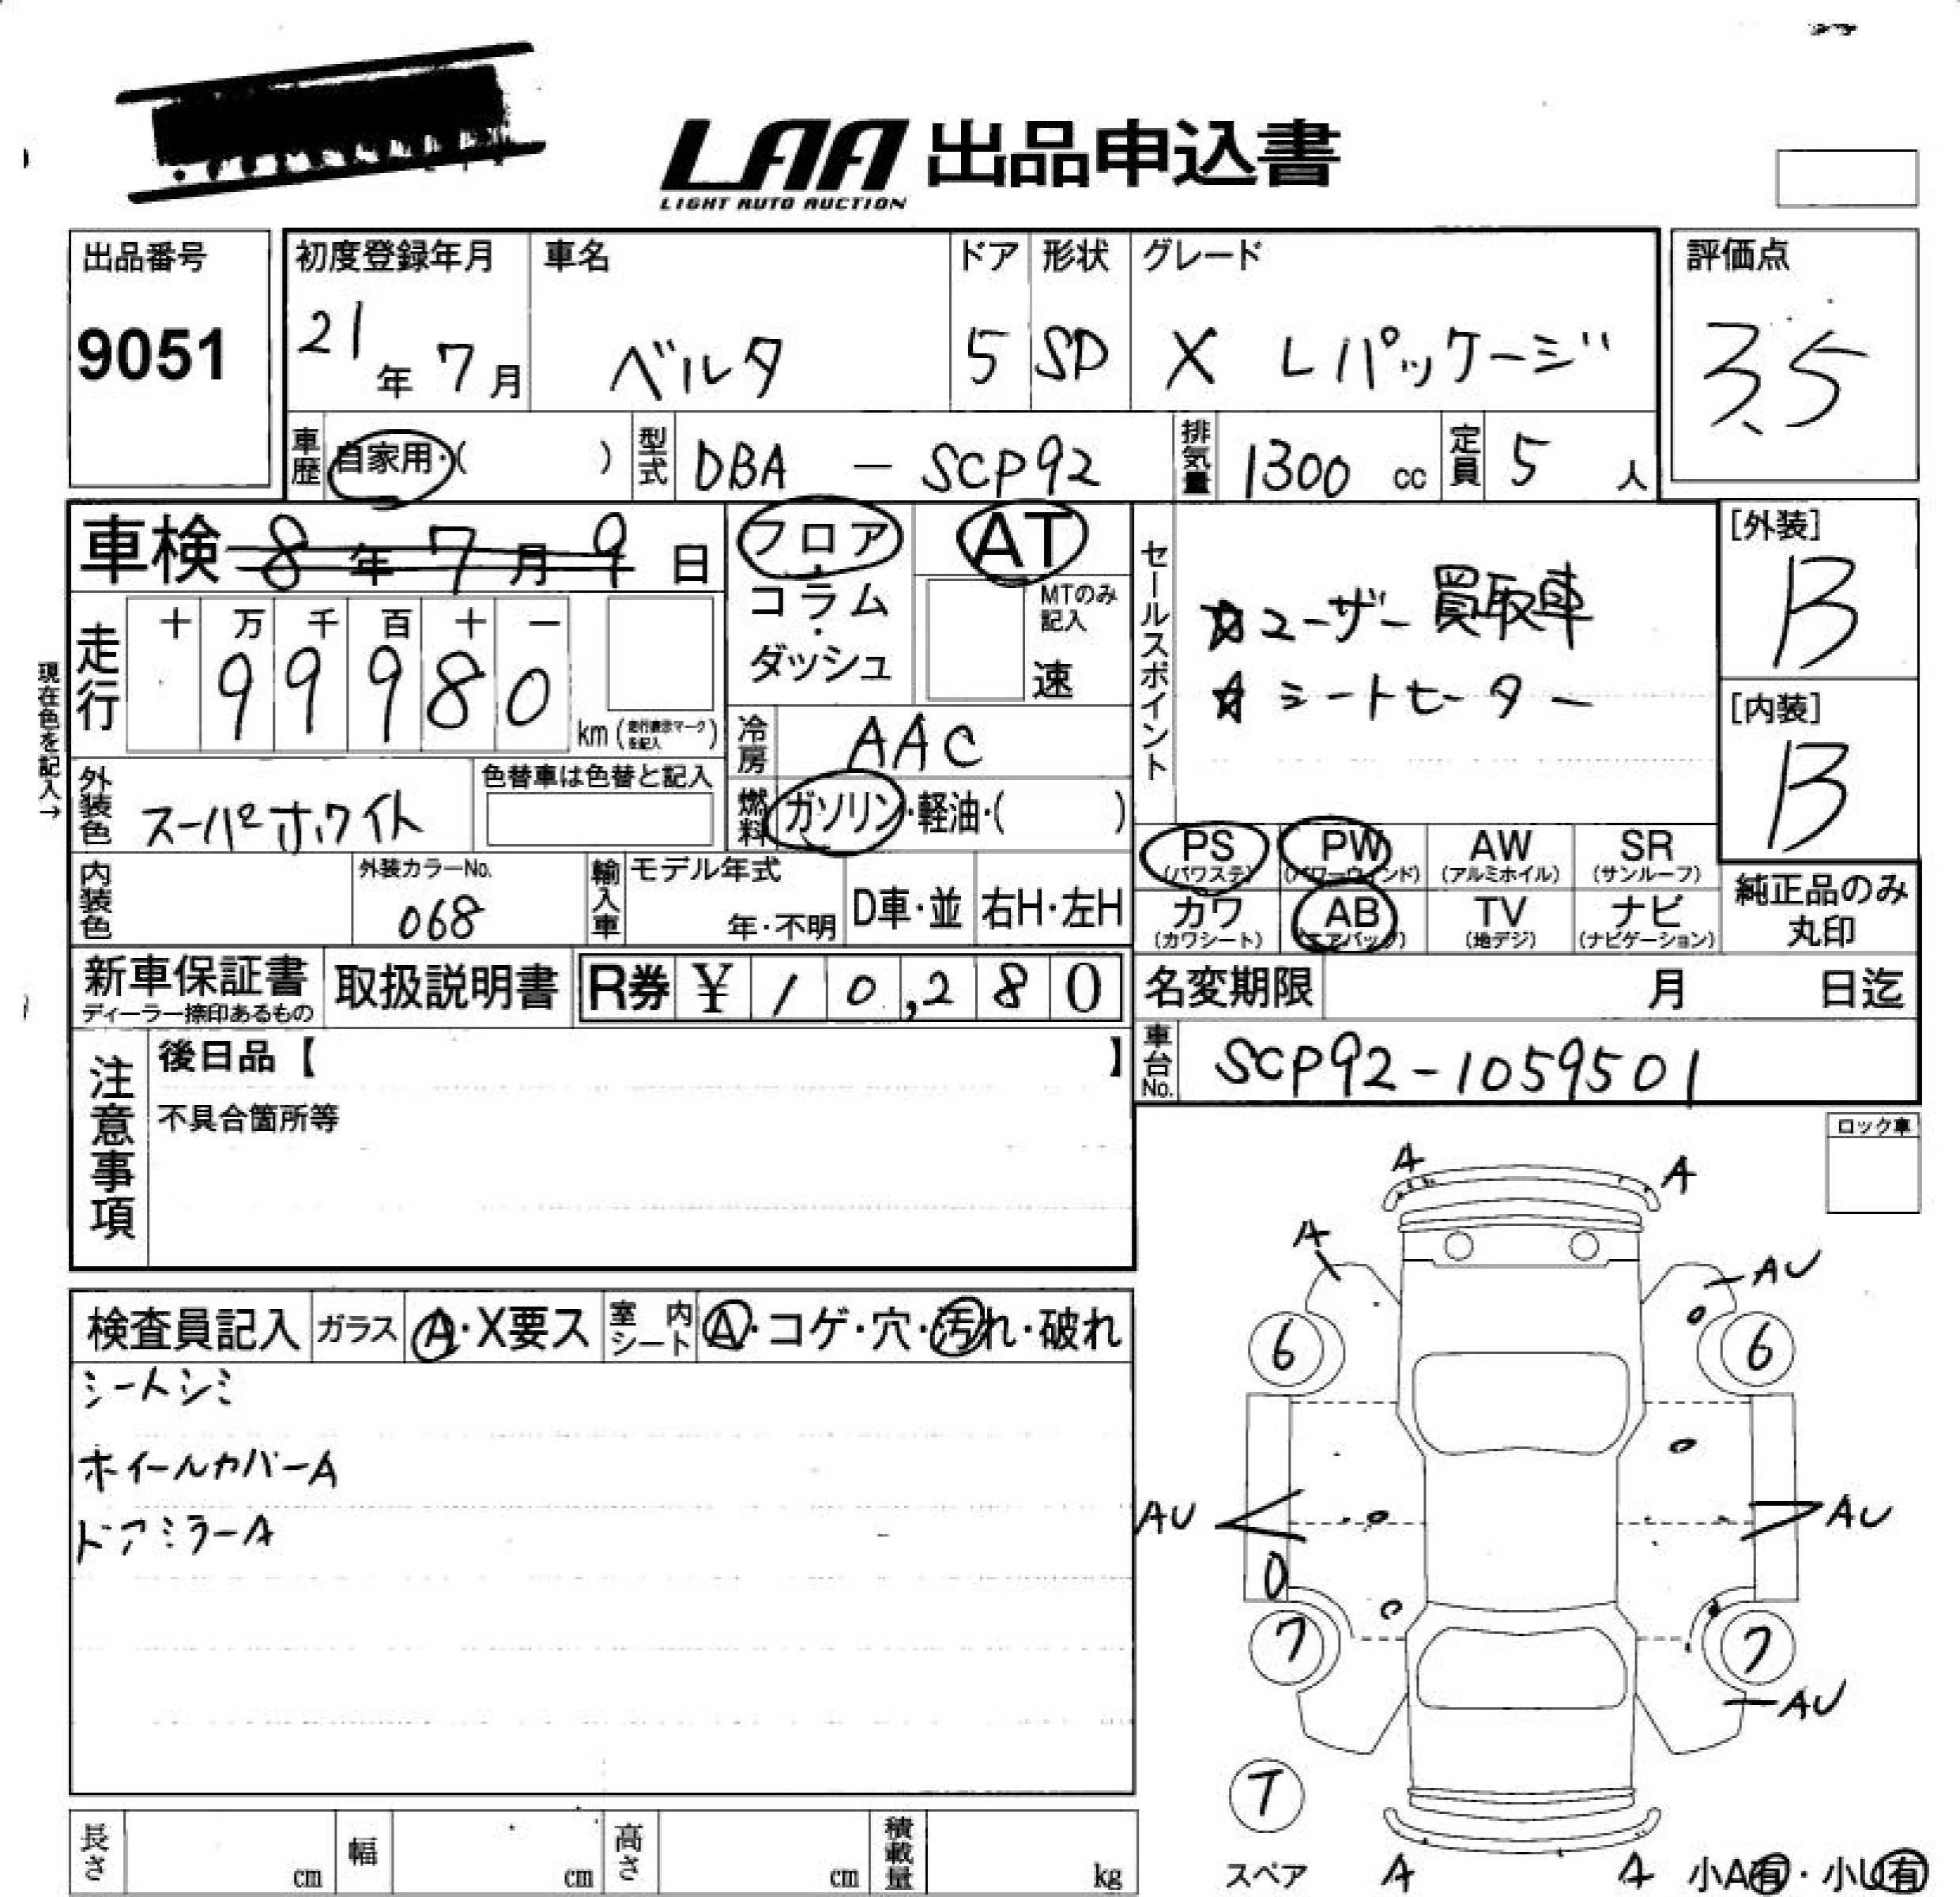 LAA 出品申込書
LIGHT AUTO AUCTION
出品番号
9051
初度登録年月
21年 7月
車名
ベルタ
ドア
5
形状
SD
グレード
X Lパッケージ
評価点
3.5
車歴 自家用・( )
型式 DBA - SCP92
排気量 1300 cc
定員 5 人
車検 8年 7月 9日
走行 十 万 千 百 十 一
99980
km (走行表示マークを記入)
現在色を記入→
外装色 スーパーホワイト
色替車は色替と記入
内装色
外装カラーNo.
068
フロア・コラム・ダッシュ
AT
MTのみ記入
速
冷房 AAC
燃料 ガソリン・軽油・( )
輸入車 モデル年式
年・不明
D車・並 右H・左H
セールスポイント
☆ユーザー買取車
☆シートヒーター
[外装]
B
[内装]
B
PS (パワステ) PW (パワーウィンド) AW (アルミホイル) SR (サンルーフ)
カワ (カワシート) AB (エアバッグ) TV (地デジ) ナビ (ナビゲーション)
純正品のみ丸印
新車保証書
ディーラー捺印あるもの
取扱説明書
R券 ¥10,280
名変期限 月 日迄
車台No. SCP92-1059501
注意事項
後日品【 】
不具合箇所等
ロック車
検査員記入 ガラス A・X要ス 室内シート A・コゲ・穴・汚れ・破れ
シートシミ
ホイールカバーA
ドアミラーA
A A
A AU
6 6
AU AU
7 7
AU
T
スペア
A A
小A有・小U有
長さ cm 幅 cm 高さ cm 積載量 kg